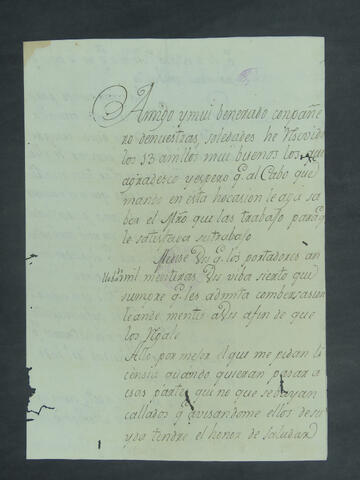 Amigo y mui benerado conpañe
ro de nuestras soledades he Resevido
los 13 anillos mui buenos los que
agradesco y espero q.e al Cabo que
mando en esta hocasion le aga sa
ber el Mro. que las trabajo para q.e
le satisfaga su trabajo
Medise Vs q.e los portadores an
mil mentiras Vs vida sierto que
siempre q.e les admita combersasion
le ande mentir a Vs a fin de que
los Regale
Alto por mejor el que me pidan li
sensia quando quieran pasar a
esos partes que no que se bayan
callados q.e avisandome ellos de su
yda tendre el honor de saludar